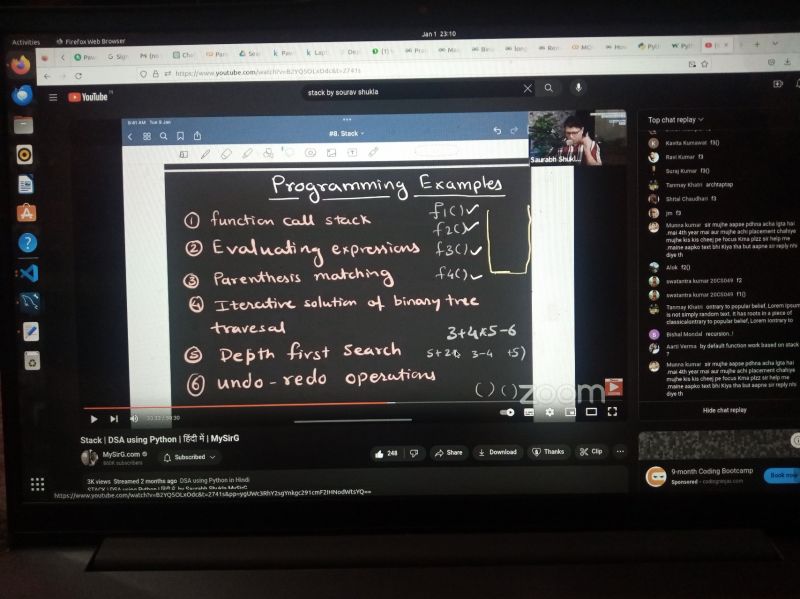 Activities
Firefox Web Browser
Jan 1 23:10
https://www.youtube.com/watch?v=B2YQ5OLxOdc&t=2741s
YouTube
stack by sourav shukla
9:41 AM Tue 9 Jan
#8. Stack
Saurabh Shukl...
Programming Examples
① function call stack
② Evaluating expressions
③ Parenthesis matching
④ Iterative solution of binary tree
travesal
⑤ Depth first search
⑥ undo-redo operations
f1() ✓
f2() ✓
f3() ✓
f4() ✓
3+4*5-6
3-4 +5)
( ) ( )
zoom
Stack | DSA using Python | हिंदी में | MySirG
MySirG.com
860K subscribers
Subscribed
248
Share
Download
Thanks
Clip
3K views Streamed 2 months ago DSA using Python in Hindi
Top chat replay
Kavita Kumawat f3()
Ravi Kumar f3
Suraj Kumar f3()
Tanmay Khatri archtaptap
Shital Chaudhari f3
jm f3
Munna kumar sir mujhe aapse pdhna acha lgta hai
.mai 4th year mai aur mujhe achi placement chahiye
mujhe kis kis cheej pe focus Krna plzz sir help me
.maine aapko text bhi Kiya tha but aapne sir reply nhi
diye th
Alok f2()
swatantra kumar 20CS049 f2
swatantra kumar 20CS049 f1()
Tanmay Khatri ontrary to popular belief, Lorem Ipsum
is not simply random text. It has roots in a piece of
classicalontrary to popular belief, Lorem iontrary to
Bishal Mondal recursion..!
Aarti Verma by default function work based on stack
?
Munna kumar sir mujhe aapse pdhna acha lgta hai
.mai 4th year mai aur mujhe achi placement chahiye
mujhe kis kis cheej pe focus Krna plzz sir help me
.maine aapko text bhi Kiya tha but aapne sir reply nhi
diye th
Hide chat replay
9-month Coding Bootcamp
Sponsored · codingninjas.com
Book now